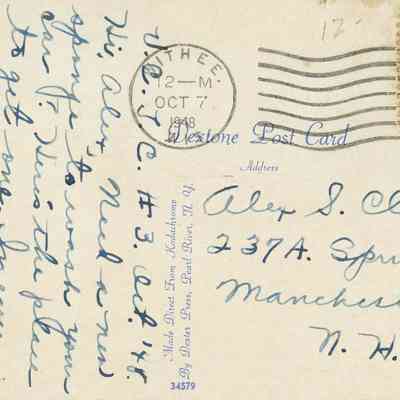 V.C.J.C. #3. Oct. '48.
Hi, Alex, Need a new
sponge to wash your
car? Here's the place
to get one.
WITHEE
12—M
OCT 7
1948
WIS.
12
Dextone Post Card
Address
Alex S. Cl
237A. Spru
Manches
N. H.
Made Direct From Kodachrome
By Dexter Press, Pearl River, N. Y.
34579